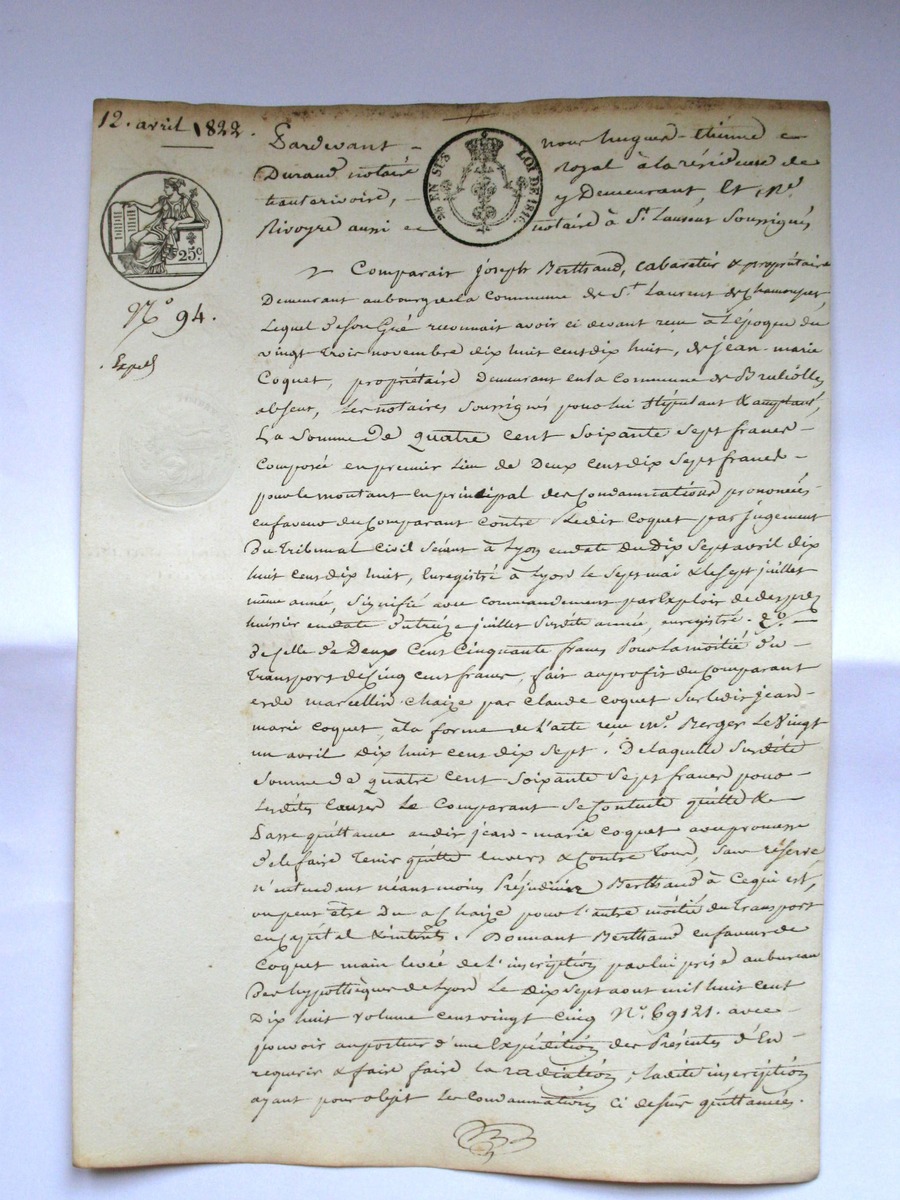 12. avril 1822.
Pardevant - nous hugues-étienne
Durand notaire royal à la résidence de
hauterivoire, - y Demeurant, Et, Me
Rivoyre aussi notaire à St. Laurent Soussignés
25 EN SUS LOI DE 1816.
25c
No 94.
Expéd
Comparait joseph Berthaud, cabaretier & propriétaire
Demeurant au bourg et la Commune de St. Laurent de Chamousset,
Lequel de son Gré reconnait avoir ci devant reçu à l'époque du
vingt Trois novembre dix huit cent dix huit, de jean-marie
Coquet, propriétaire Demeurant en la Commune de Bruliolles
absent, Les notaires Soussignés pour lui Stipulant & acceptant,
La Somme De quatre cent Soixante Sept francs -
Composée en premier Lieu de Deux cent dix Sept francs -
pour le montant en principal des Condamnations prononcées
en faveur du Comparant contre Ledit Coquet par jugement
Du Tribunal Civil Séant à Lyon en date du Dix Sept avril dix
huit cent dix huit, Enregistré à Lyon le Sept mai & le Sept juillet
même année, Signifié avec commandement par Exploit de
huissier en date du treize juillet Susdite année, enregistré. & 2o. -
de celle de Deux Cent Cinquante francs Pour la moitié du -
Transport de Cinq cent francs, fait au profit du Comparant
et de marcellin chaize par Claude Coquet Sur ledit jean-
marie Coquet, à la forme de l'acte reçu Me. Berger Le Vingt
un avril Dix huit cent dix Sept. De laquelle Susdite
Somme de quatre Cent Soixante Sept francs pour -
Lesdites Causes Le Comparant Se Contente quitte &
Passe quittance audit jean-marie Coquet avec promesse
de le faire Tenir quitte Envers & Contre Tous, Sans réserve
n'entendant néant moins Préjudicier Berthaud à Ce qui est,
ou peut être Du a Chaize pour l'autre moitié du Transport
en Capital & intérêts. Donnant Berthaud en faveur de
Coquet main levée de l'inscription par lui prise au bureau
Des hypothèques de Lyon Le dix Sept aout mil huit cent
Dix huit Volume cent vingt Cinq No. 69121. avec -
pouvoir au porteur d'une Expédition des Présentes d'En -
requérir & faire faire la radiation, Ladite inscription
ayant pour objet Les Condamnations ci dessus quittancées.